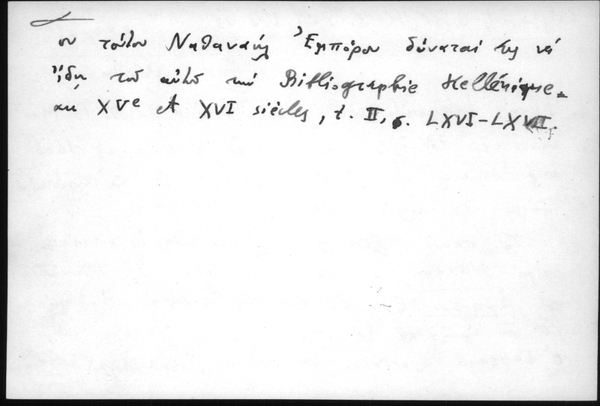 ου τούτου Ναθαναήλ Ἐμπόρου δύναταί τις νὰ
ἴδῃ τοῦ αὐτοῦ τὴν Bibliographie Hellénique
au XVe et XVI siècles, t. II, σ. LXVI-LXVII.